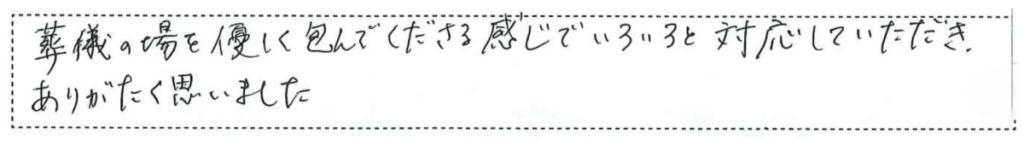 葬儀の場を優しく包んでくださる感じでいろいろと対応していただき、
ありがたく思いました